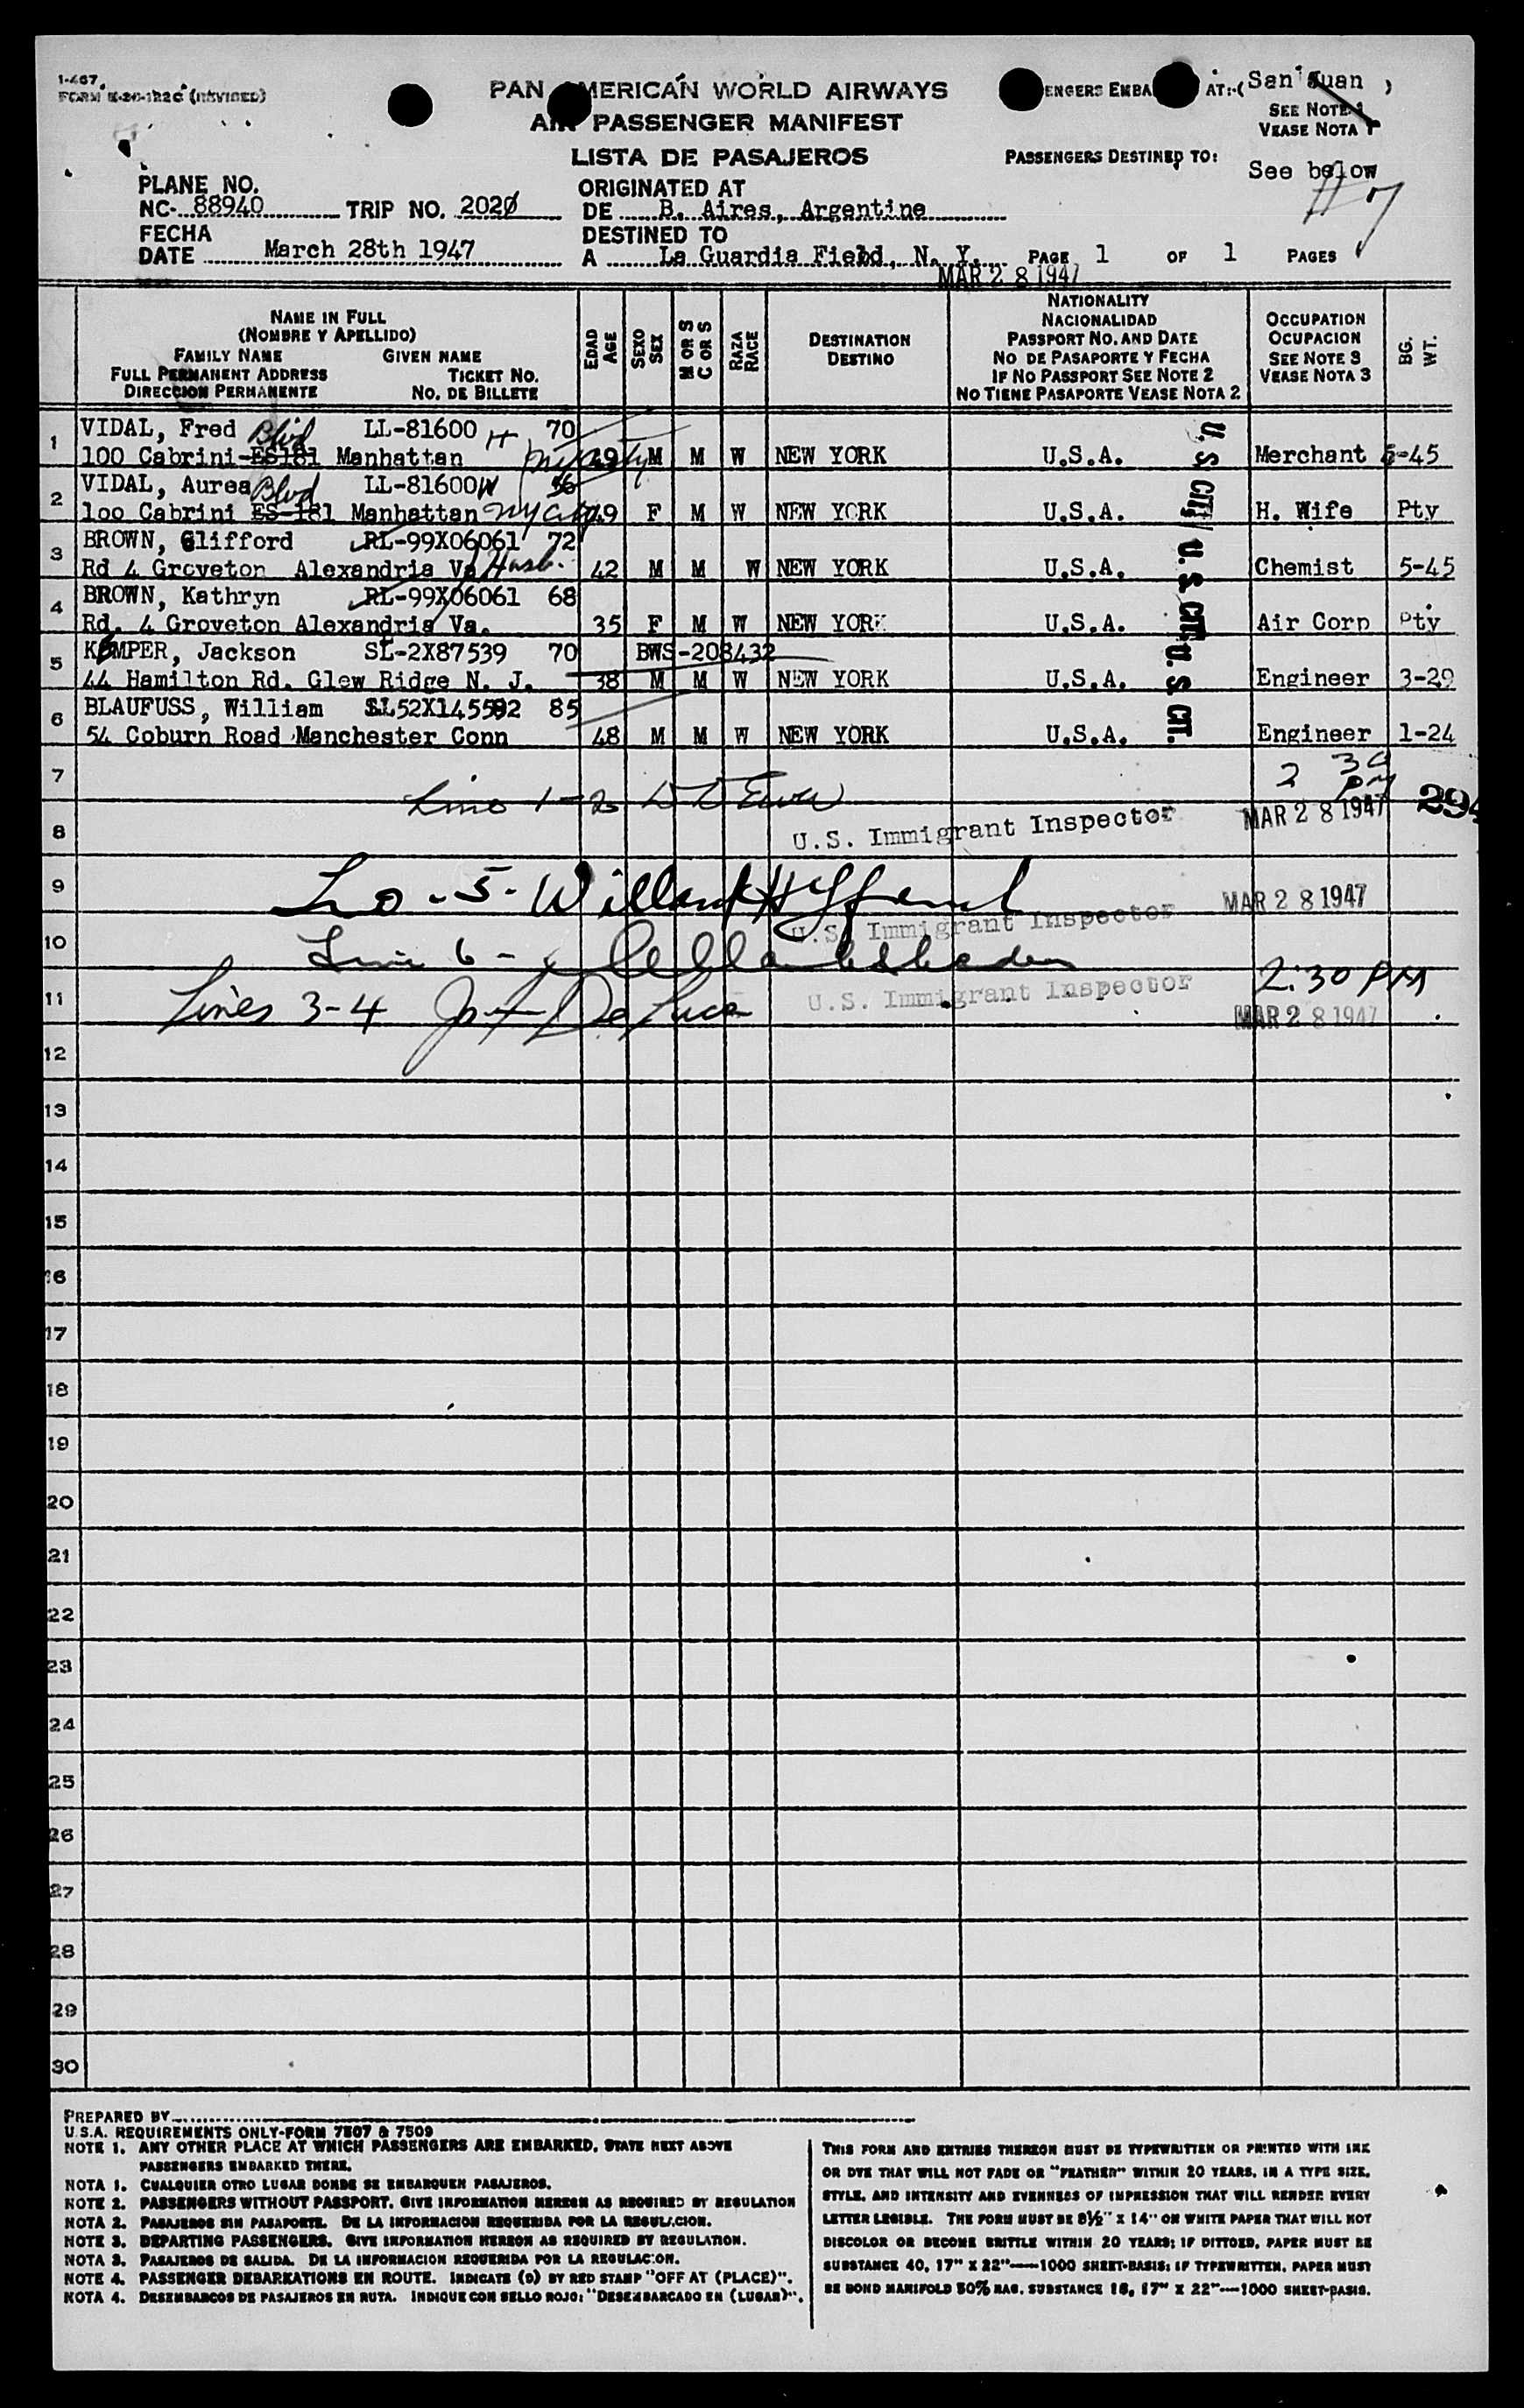 I-467
FORM K-20-122C (REVISED)
PAN AMERICAN WORLD AIRWAYS
AIR PASSENGER MANIFEST
LISTA DE PASAJEROS
ENGERS EMBA AT:-( San Juan )
SEE NOTE 1
VEASE NOTA 1
PASSENGERS DESTINED TO:
See below
#7
PLANE NO.
NC- 88940 TRIP NO. 2020
ORIGINATED AT
DE B. Aires, Argentine
FECHA
DATE March 28th 1947
DESTINED TO
A La Guardia Field, N. Y. PAGE 1 OF 1 PAGES
MAR 28 1947
NAME IN FULL
(NOMBRE Y APELLIDO)
FAMILY NAME GIVEN NAME
FULL PERMANENT ADDRESS TICKET NO.
DIRECCION PERMANENTE NO. DE BILLETE
EDAD AGE
SEXO SEX
M OR S C OR S
RAZA RACE
DESTINATION
DESTINO
NATIONALITY
NACIONALIDAD
PASSPORT NO. AND DATE
NO DE PASAPORTE Y FECHA
IF NO PASSPORT SEE NOTE 2
NO TIENE PASAPORTE VEASE NOTA 2
OCCUPATION
OCUPACION
SEE NOTE 3
VEASE NOTA 3
BG. WT.
1 VIDAL, Fred Blvd LL-81600 H 70
100 Cabrini ES181 Manhattan NY City 49 M M W NEW YORK U.S.A. Merchant 5-45
2 VIDAL, Aurea Blvd LL-81600W 56
1oo Cabrini ES-181 Manhattan NY City 49 F M W NEW YORK U.S.A. H. Wife Pty
3 BROWN, Clifford RL-99X06061 72
Rd 4 Groveton Alexandria Va Husb. 42 M M W NEW YORK U.S.A. Chemist 5-45
4 BROWN, Kathryn RL-99X06061 68
Rd. 4 Groveton Alexandria Va. 35 F M W NEW YORK U.S.A. Air Corp Pty
5 KEMPER, Jackson SL-2X87539 70 BWS-208432
44 Hamilton Rd. Glew Ridge N. J. 38 M M W NEW YORK U.S.A. Engineer 3-29
6 BLAUFUSS, William SL52X145592 85
54 Coburn Road Manchester Conn 48 M M W NEW YORK U.S.A. Engineer 1-24
U. S. CIT. U. S. CIT. U. S. CIT.
7
2 30 PM
Line 1-2
8 U.S. Immigrant Inspector MAR 28 1947 294
9 Lo - 5 - Willard H MAR 28 1947
U.S. Immigrant Inspector
10 Line 6 -
11 Lines 3-4 De Luca U.S. Immigrant Inspector 2:30 PM
MAR 28 1947
12
13
14
15
16
17
18
19
20
21
22
23
24
25
26
27
28
29
30
PREPARED BY
U.S.A. REQUIREMENTS ONLY-FORM 7507 & 7509
NOTE 1. ANY OTHER PLACE AT WHICH PASSENGERS ARE EMBARKED, STATE NEXT ABOVE
PASSENGERS EMBARKED THERE.
NOTA 1. CUALQUIER OTRO LUGAR DONDE SE EMBARQUEN PASAJEROS.
NOTE 2. PASSENGERS WITHOUT PASSPORT. GIVE INFORMATION HEREON AS REQUIRED BY REGULATION
NOTA 2. PASAJEROS SIN PASAPORTE. DE LA INFORMACION REQUERIDA POR LA REGULACION.
NOTE 3. DEPARTING PASSENGERS. GIVE INFORMATION HEREON AS REQUIRED BY REGULATION.
NOTA 3. PASAJEROS DE SALIDA. DE LA INFORMACION REQUERIDA POR LA REGULACION.
NOTE 4. PASSENGER DEBARKATIONS EN ROUTE. INDICATE (D) BY RED STAMP "OFF AT (PLACE)".
NOTA 4. DESEMBARCOS DE PASAJEROS EN RUTA. INDIQUE CON SELLO ROJO: "DESEMBARCADO EN (LUGAR)".
THIS FORM AND ENTRIES THEREON MUST BE TYPEWRITTEN OR PRINTED WITH INK
OR DYE THAT WILL NOT FADE OR "FEATHER" WITHIN 20 YEARS, IN A TYPE SIZE,
STYLE, AND INTENSITY AND EVENNESS OF IMPRESSION THAT WILL RENDER EVERY
LETTER LEGIBLE. THE FORM MUST BE 8½" X 14" ON WHITE PAPER THAT WILL NOT
DISCOLOR OR BECOME BRITTLE WITHIN 20 YEARS; IF DITTOED, PAPER MUST BE
SUBSTANCE 40, 17" X 22"—1000 SHEET-BASIS; IF TYPEWRITTEN, PAPER MUST
BE BOND MANIFOLD 50% RAG, SUBSTANCE 16, 17" X 22"—1000 SHEET-BASIS.